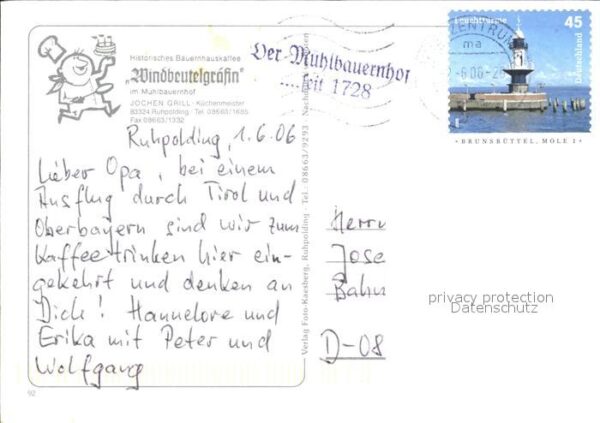 Historisches Bauernhauskaffee
„Windbeutelgräfin"
im Mühlbauernhof
JOCHEN GRILL · Küchenmeister
83324 Ruhpolding · Tel. 08663/1685
Fax 08663/1332
Der Mühlbauernhof
seit 1728
ZENTRUM
ma
-6.06-2
Leuchttürme
45
Deutschland
BRUNSBÜTTEL, MOLE 1
Ruhpolding, 1.6.06
Lieber Opa, bei einem
Ausflug durch Tirol und
Oberbayern sind wir zum
Kaffeetrinken hier ein-
gekehrt und denken an
Dich! Hannelore und
Erika mit Peter und
Wolfgang
Verlag Foto-Kaesberg, Ruhpolding · Tel.: 08663/9293
Herrn
Jose
Bahn
D-08
privacy protection
Datenschutz
92